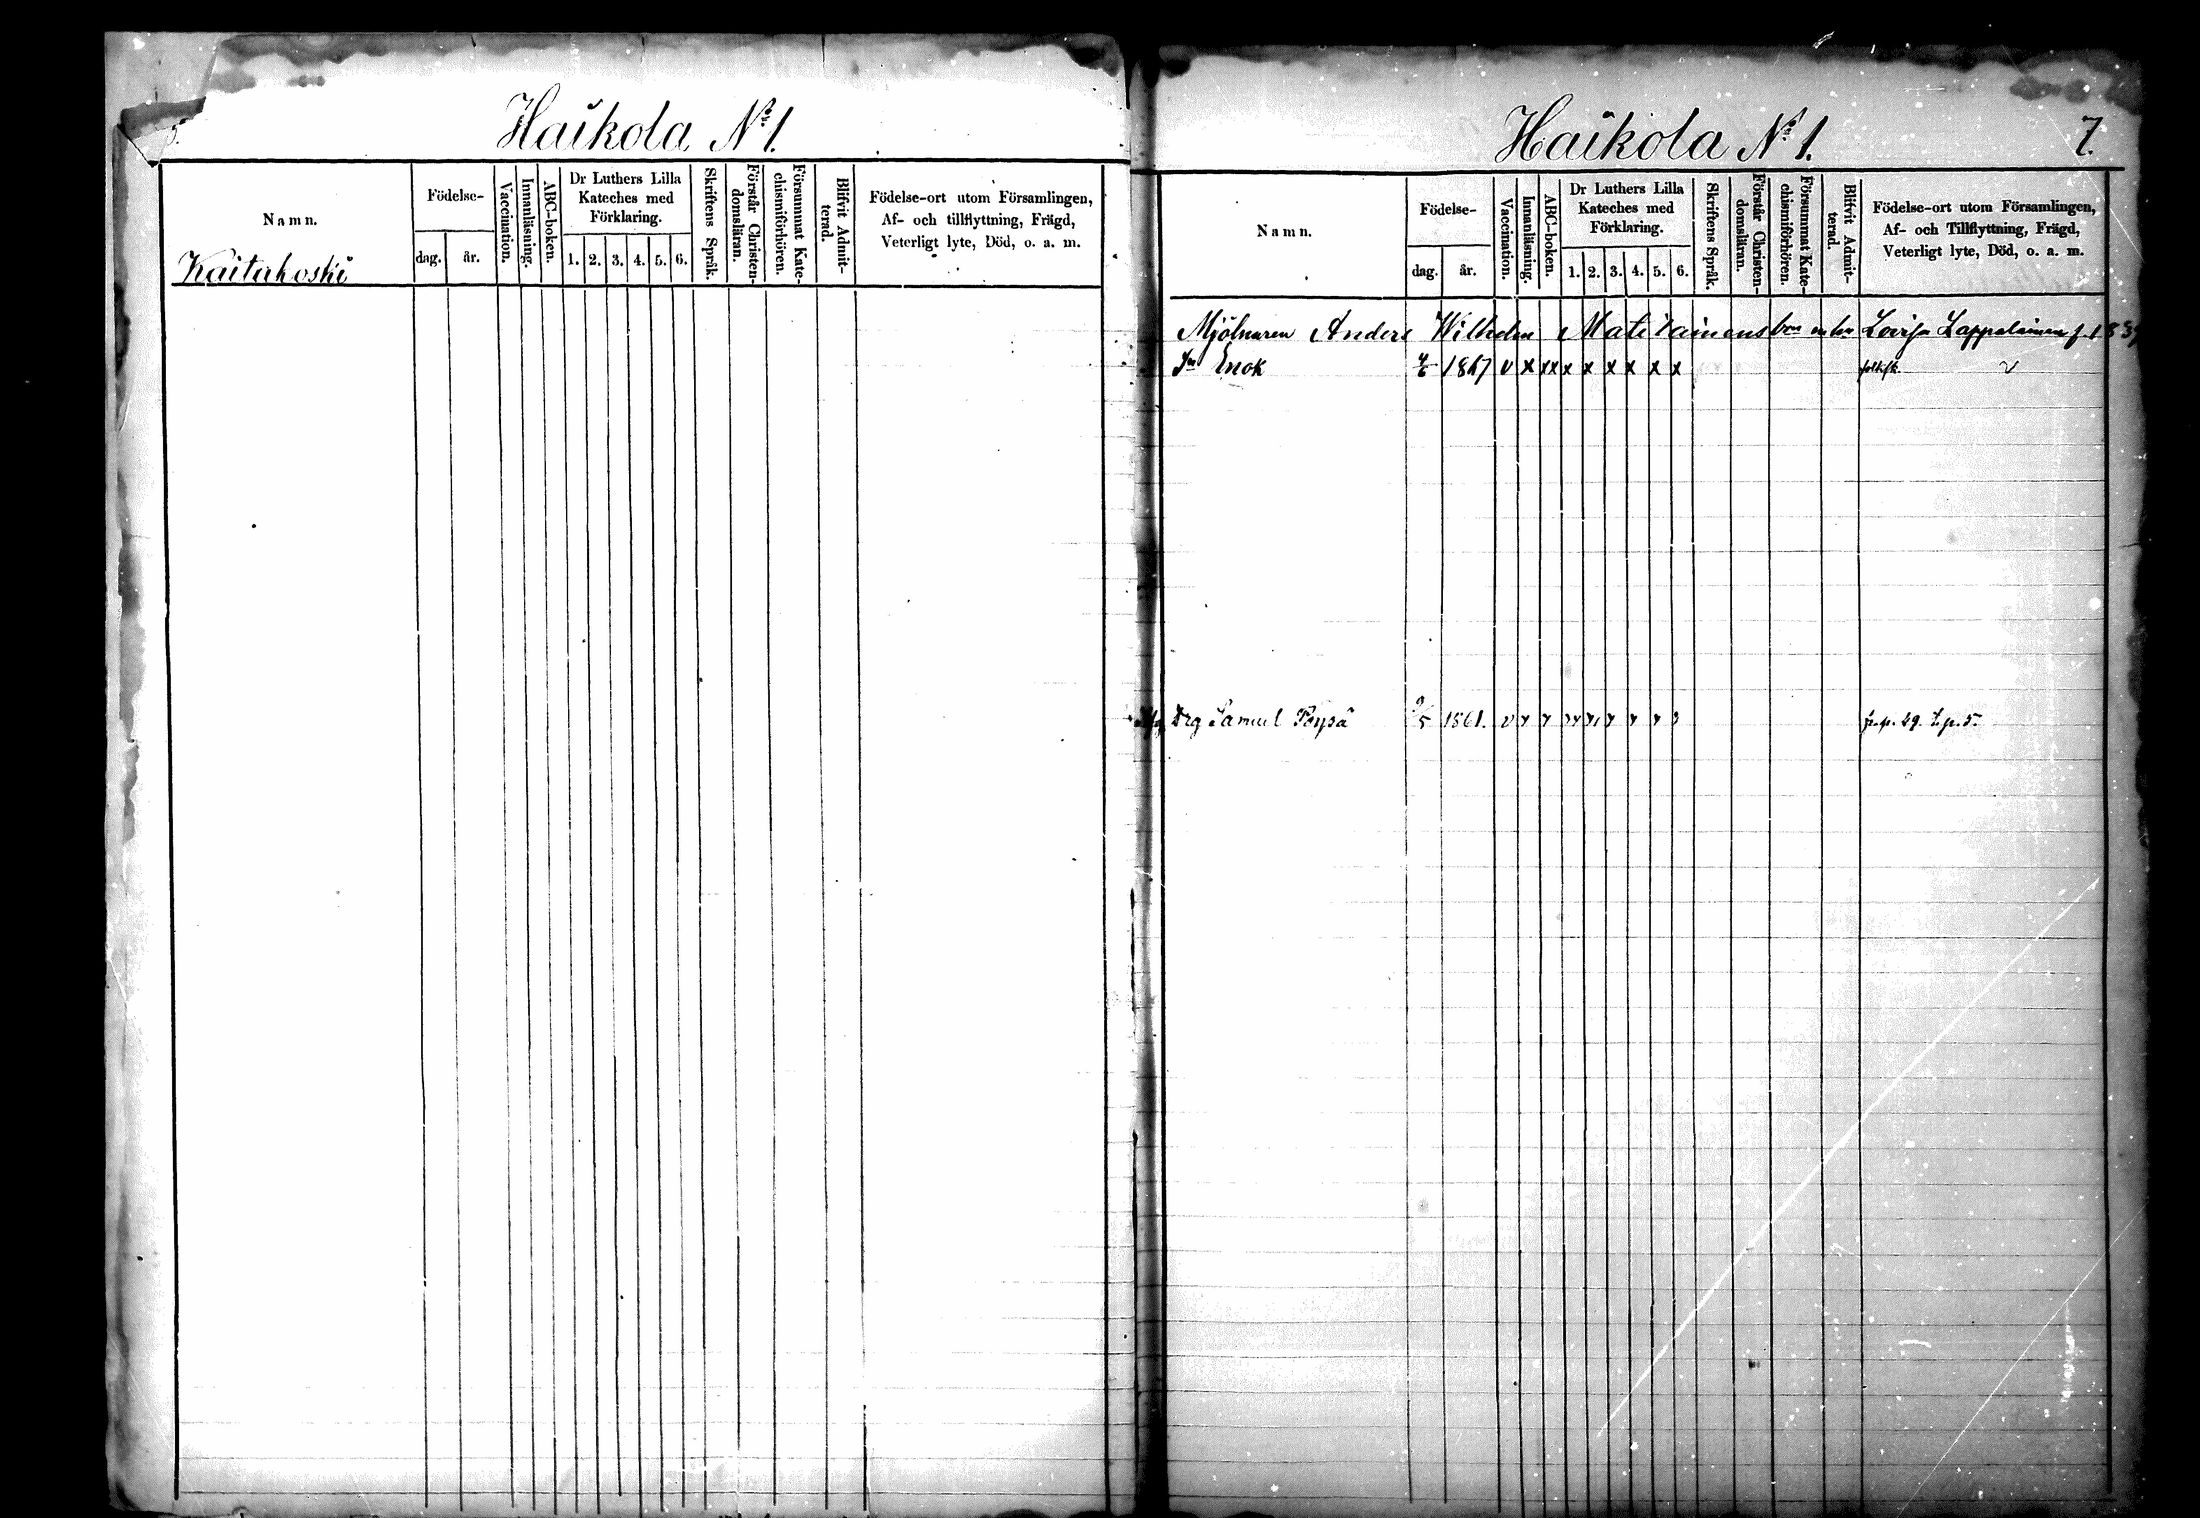 Haikola No 1.
Namn.
Födelse-
dag.
år.
Vaccination.
Innanläsning.
ABC-boken.
Dr Luthers Lilla
Kateches med
Förklaring.
1. 2. 3. 4. 5. 6.
Skriftens Språk.
Förstår Christen-
domsläran.
Försummat Kate-
chismiförhören.
Blifvit Admit-
terad.
Födelse-ort utom Församlingen,
Af- och tillflyttning, Frägd,
Veterligt lyte, Död, o. a. m.
Kaitakoski
Haikola No 1.
7.
Namn.
Födelse-
dag.
år.
Vaccination.
Innanläsning.
ABC-boken.
Dr Luthers Lilla
Kateches med
Förklaring.
1. 2. 3. 4. 5. 6.
Skriftens Språk.
Förstår Christen-
domsläran.
Försummat Kate-
chismiförhören.
Blifvit Admit-
terad.
Födelse-ort utom Församlingen,
Af- och Tillflyttning, Frägd,
Veterligt lyte, Död, o. a. m.
Mjölnaren Anders Wilhelm Matilainens Lovisa Lappalainen f. 1839
Sn Enok 1867 v x xx x x x x x x v
Drg Samuel Pöysä 9/5 1861. v fr. p. 29. t. p. 5.